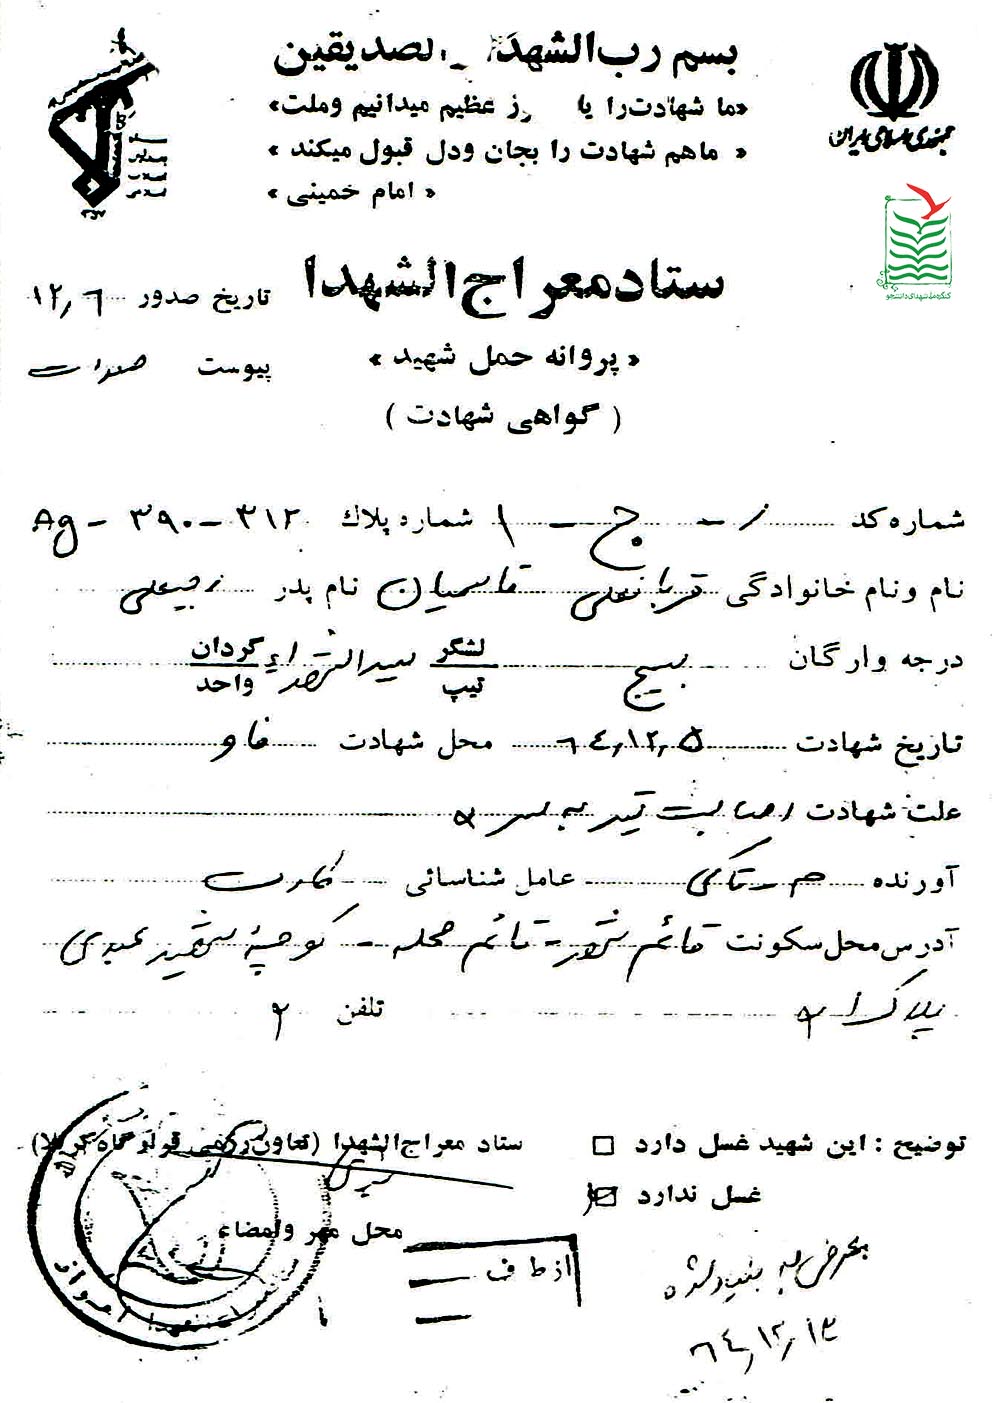 بسم رب الشهدا لصدیقین
«ما شهادت را یا ز عظیم میدانیم وملت»
« ماهم شهادت را بجان ودل قبول میکند »
« امام خمینی »
جمهوری اسلامی ایران
کنگره ملی شهدای دانشجو
ستاد معراج الشهدا
تاریخ صدور ۱۲٫۶
« پروانه حمل شهید »
پیوست
( گواهی شهادت )
شماره کد ر - ج - ۱ شماره پلاك ۳۱۲-۳۹۰- Ag
نام ونام خانوادگی قربانعلی قاسمیان نام پدر رجبعلی
درجه وارگان بسیج لشگر تیپ سیدالشهداء گردان واحد
تاریخ شهادت ۶۴٫۱۲٫۵ محل شهادت فاو
علت شهادت اصابت تیر به سر
آورنده عامل شناسائی کارت
آدرس محل سکونت قائم شهر - قائم محله - کوچه شهید عبدی
پلاک تلفن
توضیح : این شهید غسل دارد □ ستاد معراج الشهدا (تعاون رزمی قرارگاه کربلا)
غسل ندارد ☑
محل مهر وامضاء
از ط ف
بعرض به بنیاد
۶۴٫۱۲٫۱۳
اهواز